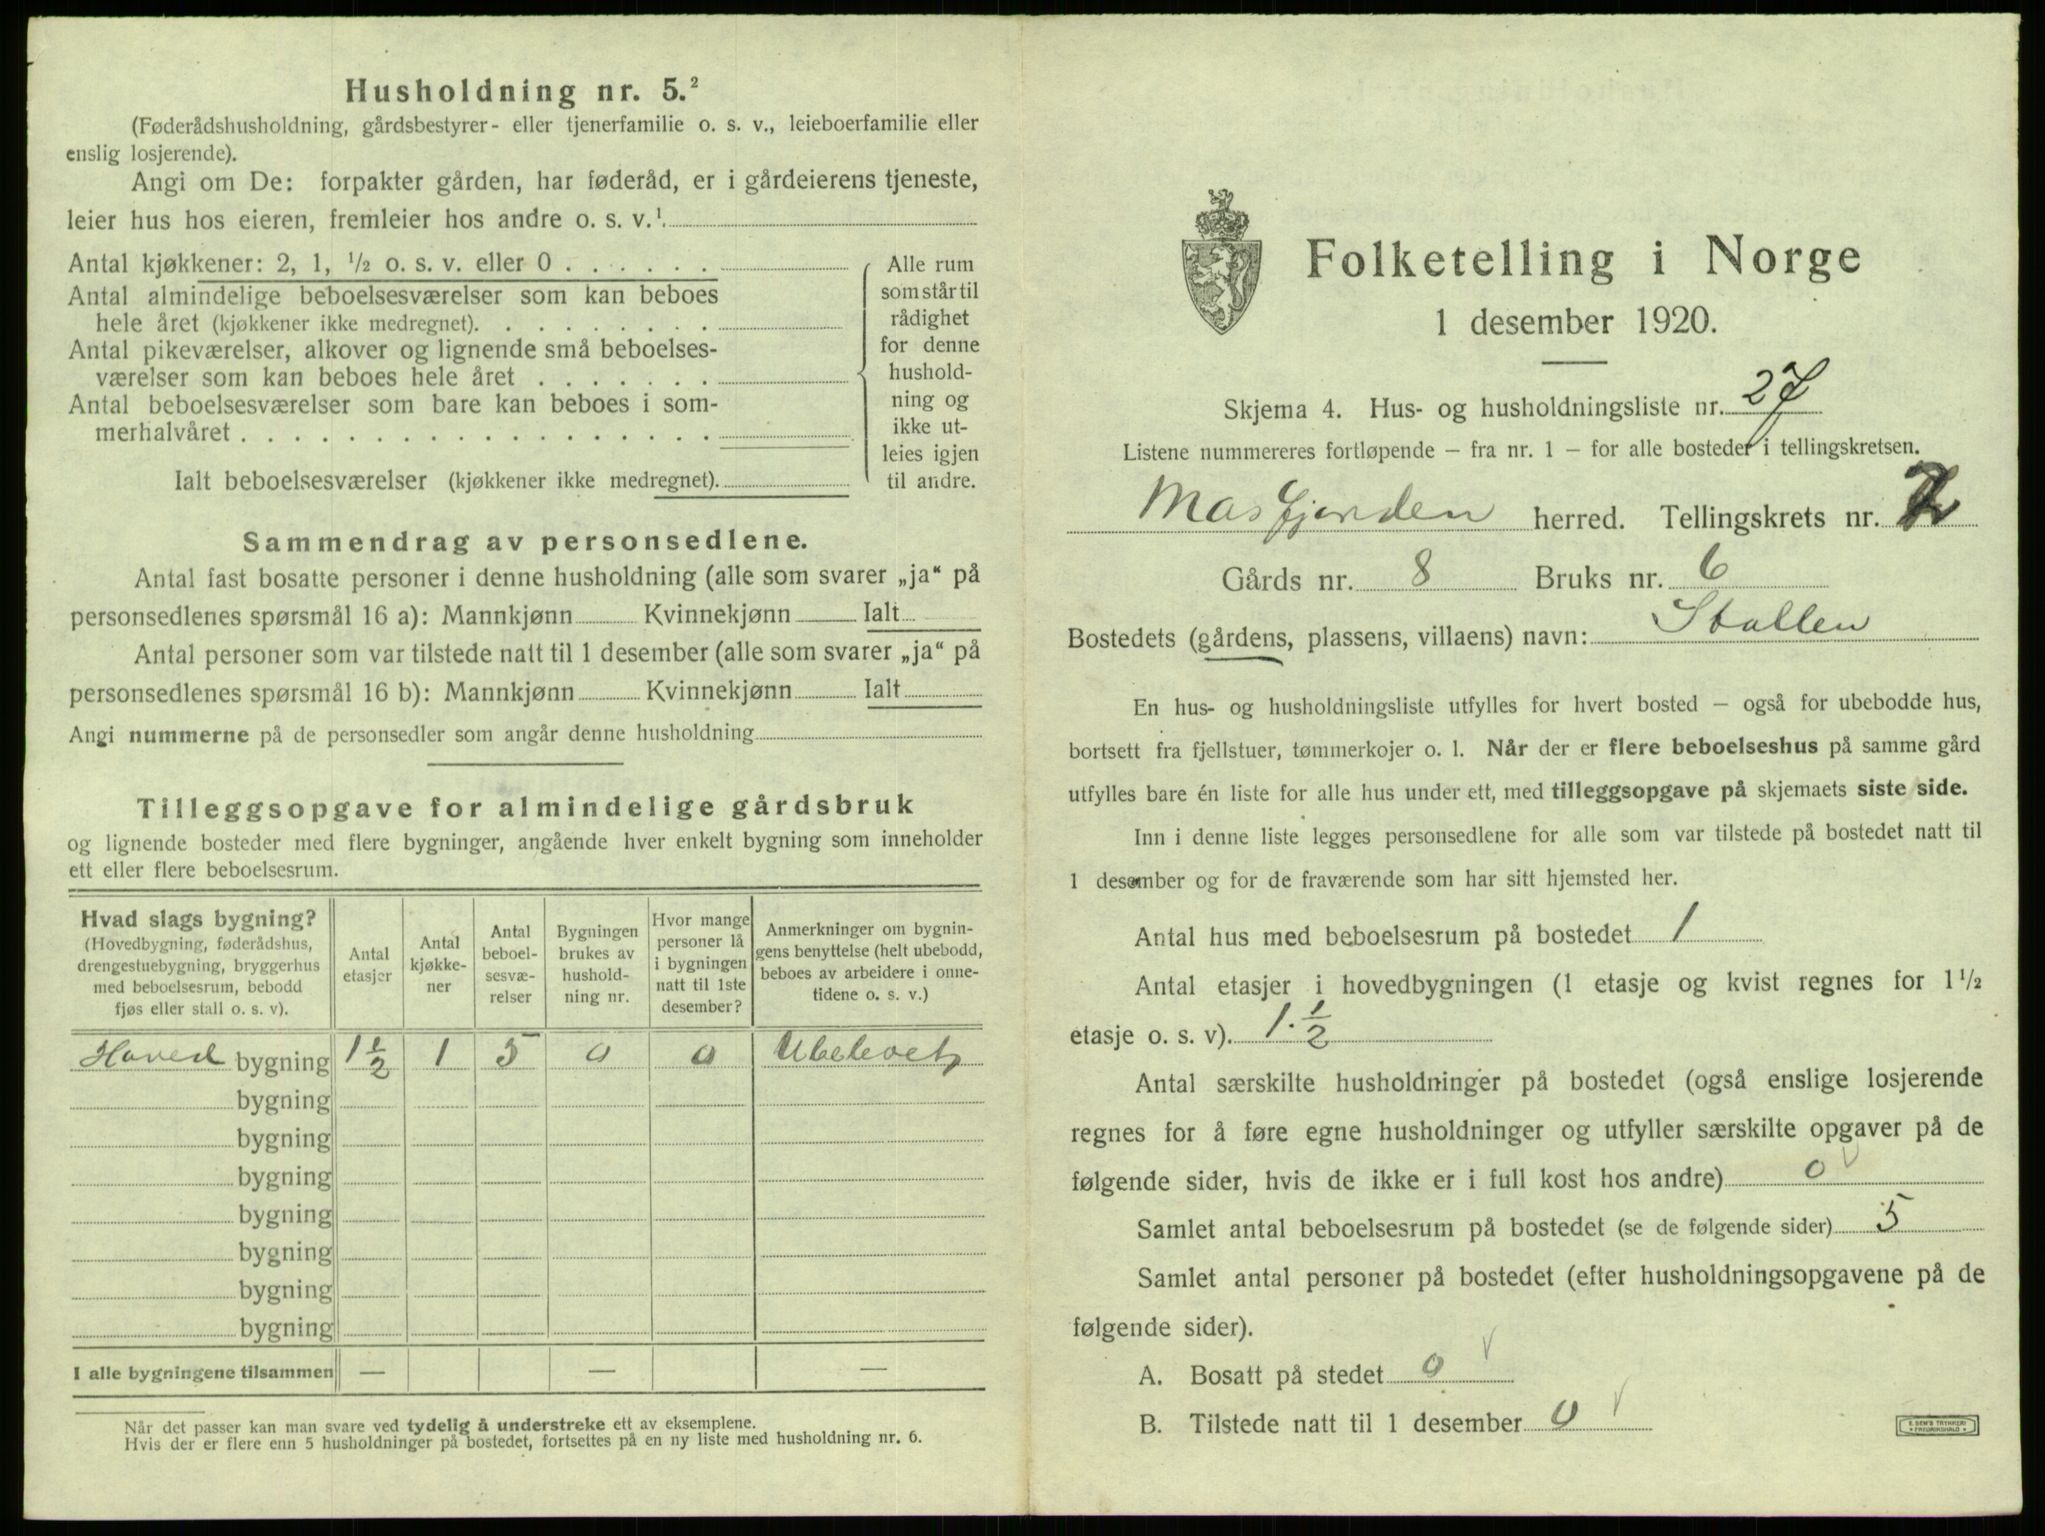 Husholdning nr. 5.²
(Føderådshusholdning, gårdsbestyrer- eller tjenerfamilie o. s. v., leieboerfamilie eller
enslig losjerende).
Angi om De: forpakter gården, har føderåd, er i gårdeierens tjeneste,
leier hus hos eieren, fremleier hos andre o. s. v.¹.
Antal kjøkkener: 2, 1, ½ o. s. v. eller 0 . . . . . .
Antal almindelige beboelsesværelser som kan beboes
hele året (kjøkkener ikke medregnet). . . . . . . . .
Antal pikeværelser, alkover og lignende små beboelses-
værelser som kan beboes hele året . . . . . . .
Antal beboelsesværelser som bare kan beboes i som-
merhalvåret . . . . . . . . . . . . . . . . . .
Ialt beboelsesværelser (kjøkkener ikke medregnet).
Alle rum
som står til
rådighet
for denne
hushold-
ning og
ikke ut-
leies igjen
til andre.
Sammendrag av personsedlene.
Antal fast bosatte personer i denne husholdning (alle som svarer „ja“ på
personsedlenes spørsmål 16 a): Mannkjønn Kvinnekjønn Ialt
Antal personer som var tilstede natt til 1 desember (alle som svarer „ja“ på
personsedlenes spørsmål 16 b): Mannkjønn Kvinnekjønn Ialt
Angi nummerne på de personsedler som angår denne husholdning
Tilleggsopgave for almindelige gårdsbruk
og lignende bosteder med flere bygninger, angående hver enkelt bygning som inneholder
ett eller flere beboelsesrum.
Hvad slags bygning?
(Hovedbygning, føderådshus,
drengestuebygning, bryggerhus
med beboelsesrum, bebodd
fjøs eller stall o. s. v).
Antal
etasjer
Antal
kjøkke-
ner
Antal
beboel-
sesvæ-
relser
Bygningen
brukes av
hushold-
ning nr.
Hvor mange
personer lå
i bygningen
natt til 1ste
desember?
Anmerkninger om bygnin-
gens benyttelse (helt ubebodd,
beboes av arbeidere i onne-
tidene o. s. v.)
Hoved bygning 1 ½ 1 5 0 0
bygning
bygning
bygning
bygning
bygning
bygning
bygning
I alle bygningene tilsammen — — —
Når det passer kan man svare ved tydelig å understreke ett av eksemplene.
Hvis der er flere enn 5 husholdninger på bostedet, fortsettes på en ny liste med husholdning nr. 6.
Folketelling i Norge
1 desember 1920.
Skjema 4. Hus- og husholdningsliste nr. 27
Listene nummereres fortløpende – fra nr. 1 – for alle bosteder i tellingskretsen.
Masfjorden herred. Tellingskrets nr.
Gårds nr. 8 Bruks nr. 6
Bostedets (gårdens, plassens, villaens) navn: Stallen
En hus- og husholdningsliste utfylles for hvert bosted – også for ubebodde hus,
bortsett fra fjellstuer, tømmerkojer o. l. Når der er flere beboelseshus på samme gård
utfylles bare én liste for alle hus under ett, med tilleggsopgave på skjemaets siste side.
Inn i denne liste legges personsedlene for alle som var tilstede på bostedet natt til
1 desember og for de fraværende som har sitt hjemsted her.
Antal hus med beboelsesrum på bostedet 1
Antal etasjer i hovedbygningen (1 etasje og kvist regnes for 1½
etasje o. s. v). 1.½
Antal særskilte husholdninger på bostedet (også enslige losjerende
regnes for å føre egne husholdninger og utfyller særskilte opgaver på de
følgende sider, hvis de ikke er i full kost hos andre) 0 v
Samlet antal beboelsesrum på bostedet (se de følgende sider) 5
Samlet antal personer på bostedet (efter husholdningsopgavene på de
følgende sider).
A. Bosatt på stedet 0 v
B. Tilstede natt til 1 desember 0 v
E. SEM'S TRYKKERI
FREDRIKSHALD